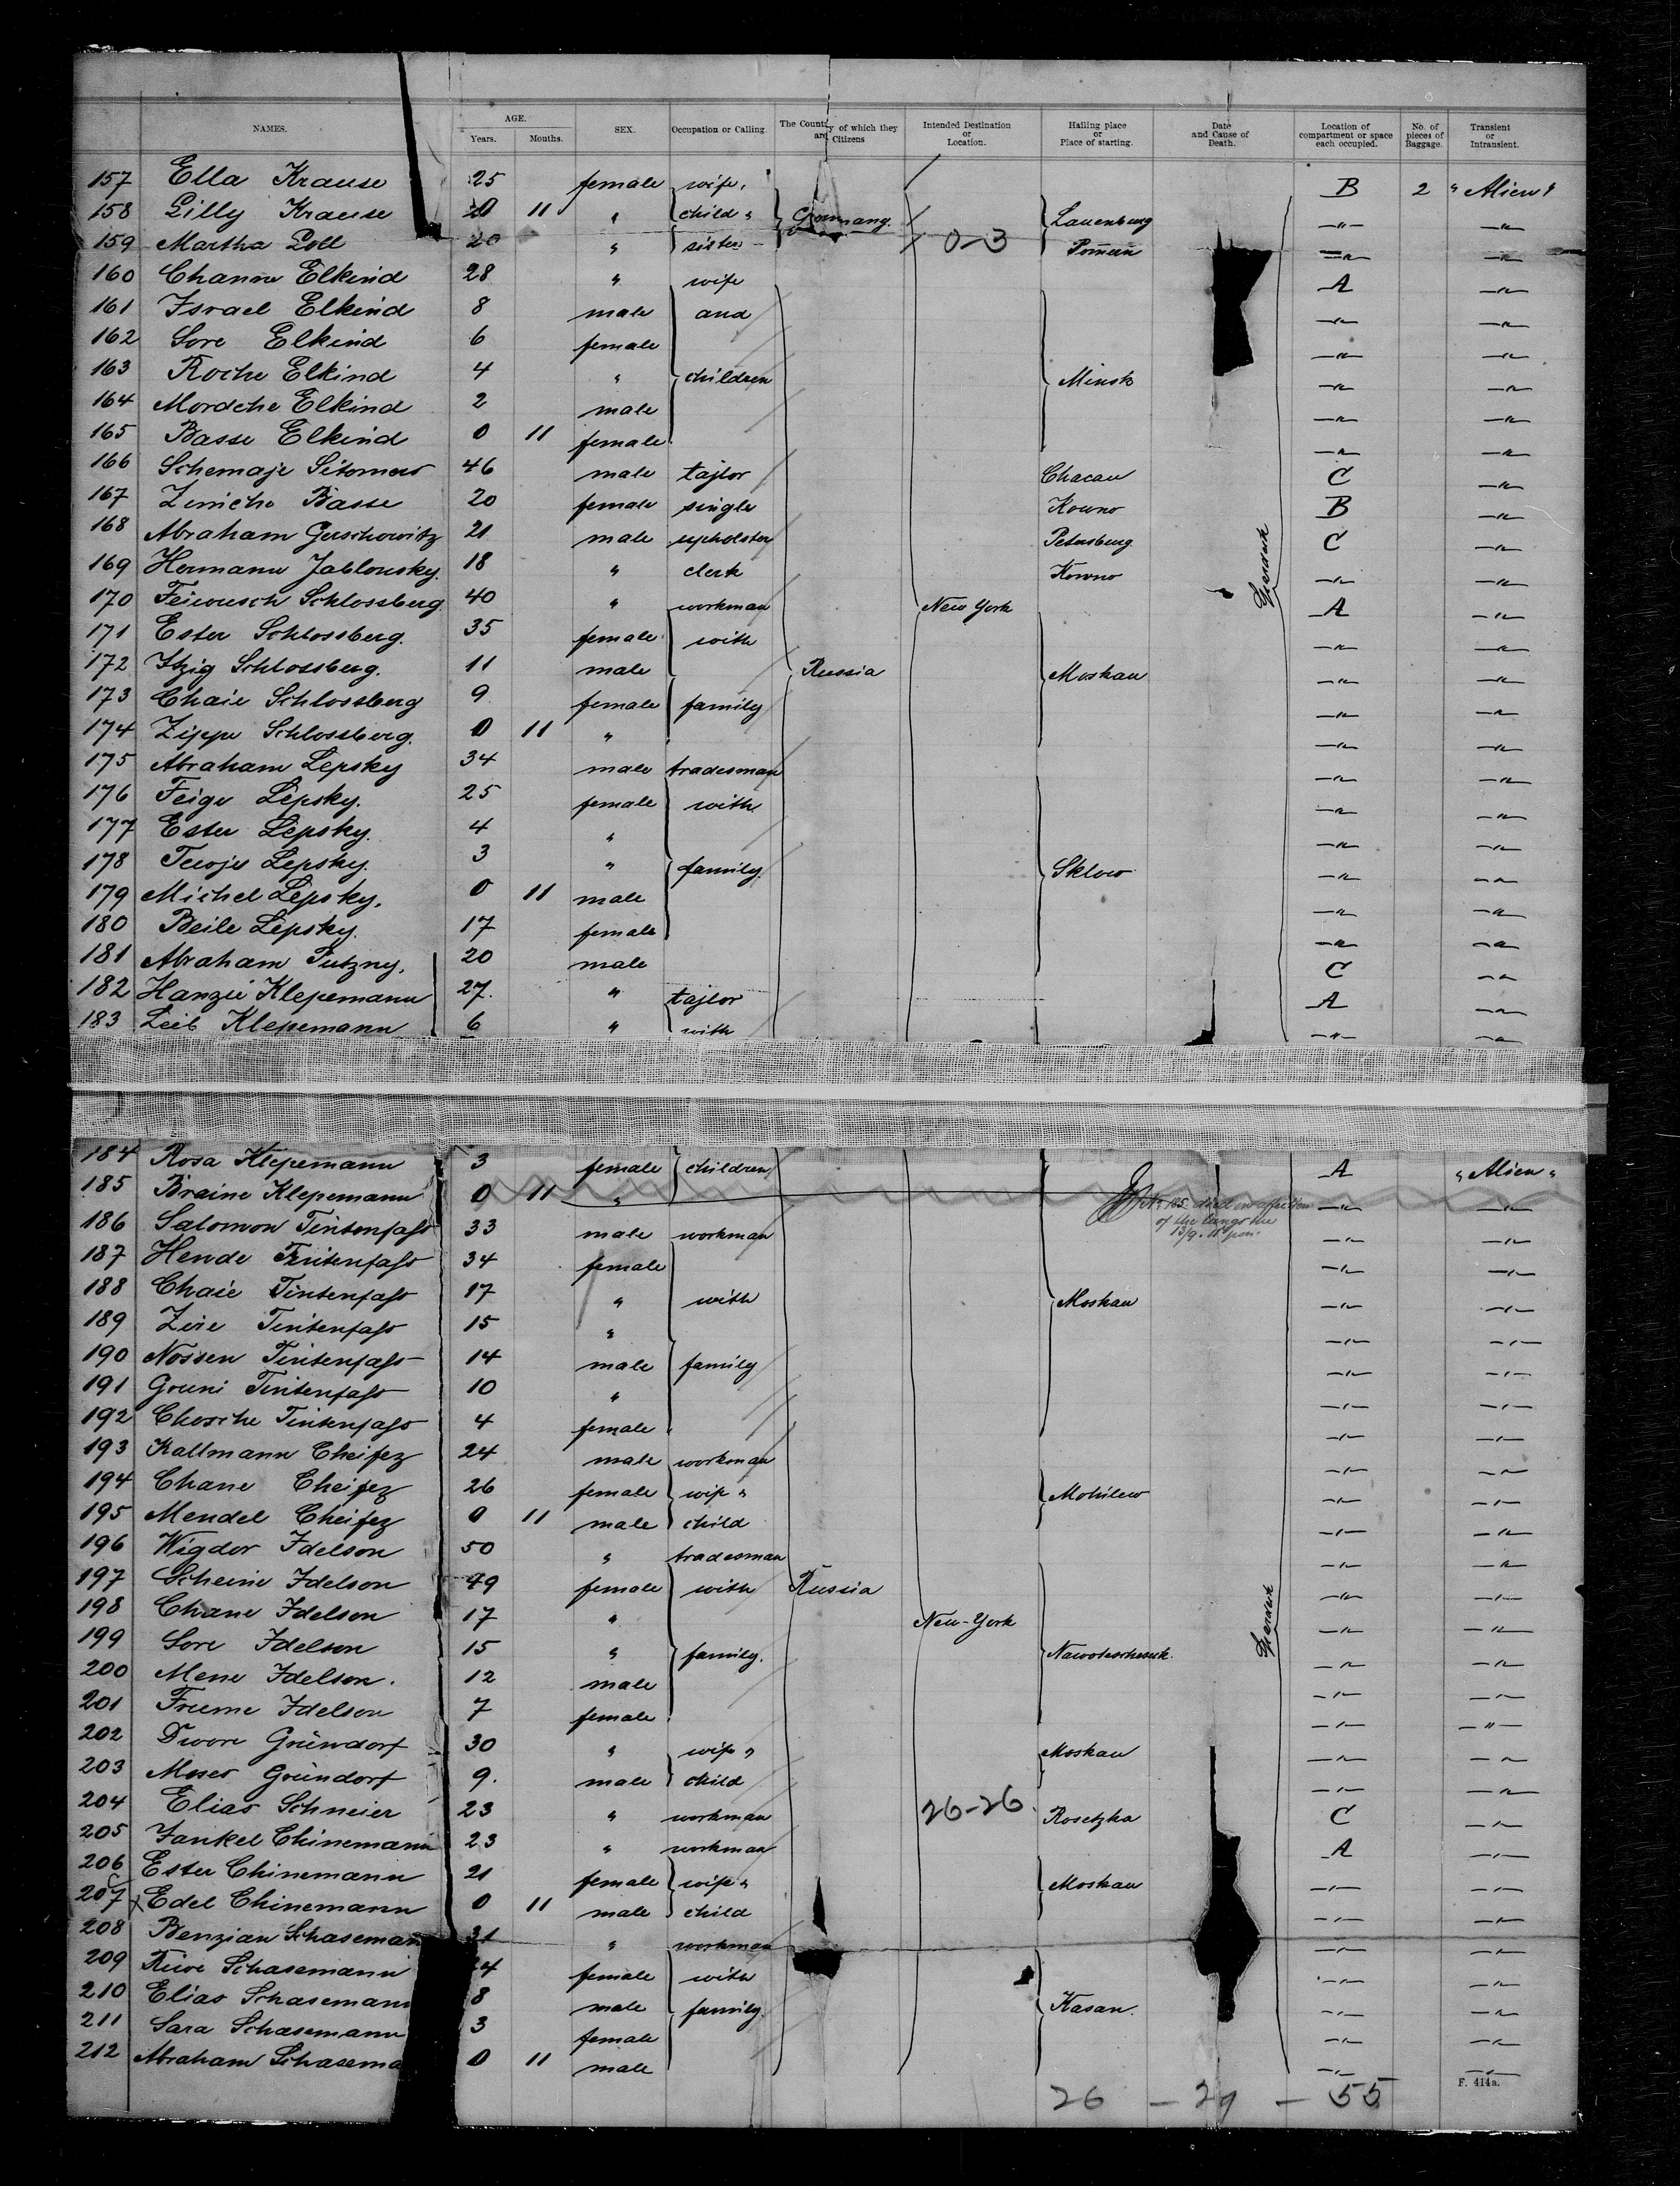 NAMES. AGE. Years. Months. SEX. Occupation or Calling. The Country of which they are Citizens Intended Destination or Location. Hailing place or Place of starting. Date and Cause of Death. Location of compartment or space each occupied. No. of pieces of Baggage. Transient or Intransient.
157 Ella Krause 25 female wife, B 2 "Alien"
158 Lilly Krause 0 11 " child " Germany. Lauenburg —"— —"—
159 Martha Poll 20 " sister 0-3 —"— —"—
160 Channe Elkind 28 " wife A —"—
161 Israel Elkind 8 male and —"— —"—
162 Sore Elkind 6 female —"— —"—
163 Roche Elkind 4 " children Minsk —"— —"—
164 Mordche Elkind 2 male —"— —"—
165 Basse Elkind 0 11 female —"— —"—
166 Schemaje 46 male tajlor Chacau C —"—
167 Basse 20 female single Kowno B —"—
168 Abraham Gerschowitz 21 male upholster Petersburg C —"—
169 Hermann Jablonsky. 18 " clerk Kowno —"— —"—
170 Feiwusch Schlossberg 40 " workman New York A —"—
171 Ester Schlossberg. 35 female with —"— —"—
172 Itzig Schlossberg. 11 male Russia Moskau —"— —"—
173 Chaie Schlossberg 9 female family —"— —"—
174 Zippe Schlossberg. 0 11 " —"— —"—
175 Abraham Lepsky 34 male tradesman —"— —"—
176 Feige Lepsky. 25 female with —"— —"—
177 Ester Lepsky. 4 " —"— —"—
178 Lepsky. 3 " family. Sklow —"— —"—
179 Michel Lepsky. 0 11 male —"— —"—
180 Beile Lepsky. 17 female —"— —"—
181 Abraham 20 male C —"—
182 Hanzie Klepemann 27. " tajlor A —"—
183 Leib Klepemann 6 " with —"— —"—
184 Rosa Klepemann 3 female children A "Alien"
185 Braine Klepemann 0 11 " No 185 died on affection —"— —"—
of the lungs the
13/9.
186 Salomon Tintenfass 33 male workman —"— —"—
187 Hende Tintenfass 34 female —"— —"—
188 Chaie Tintenfass 17 " with Moskau —"— —"—
189 Zire Tintenfass 15 " —"— —"—
190 Nossen Tintenfass 14 male family —"— —"—
191 Gruni Tintenfass 10 " —"— —"—
192 Chosche Tintenfass 4 female —"— —"—
193 Kallmann Cheifez 24 male workman —"— —"—
194 Chane Cheifez 26 female wife " Mohilew —"— —"—
195 Mendel Cheifez 0 11 male child —"— —"—
196 Wigdor Idelson 50 " tradesman —"— —"—
197 Scheine Idelson 49 female with Russia —"— —"—
198 Chane Idelson 17 " New-York —"— —"—
199 Sore Idelson 15 " family. —"— —"—
200 Mene Idelson. 12 male —"— —"—
201 Frume Idelson 7 female —"— —"—
202 Dwore Gründorf 30 " wife " Moskau —"— —"—
203 Moses Gründorf 9. male child —"— —"—
204 Elias Schneier 23 " workman 26-26 Rosetzka C —"—
205 Jankel Chinemann 23 " workman A —"—
206 Ester Chinemann 21 female wife " Moskau —"— —"—
207 Edel Chinemann 0 11 male child —"— —"—
208 Benzian Schasemann 31 " workman —"— —"—
209 Riwe Schasemann 24 female with —"— —"—
210 Elias Schasemann 8 male family. Kasan. —"— —"—
211 Sara Schasemann 3 female —"— —"—
212 Abraham Schasema 0 11 male —"— —"—
F. 414a.
26 - 29 - 55